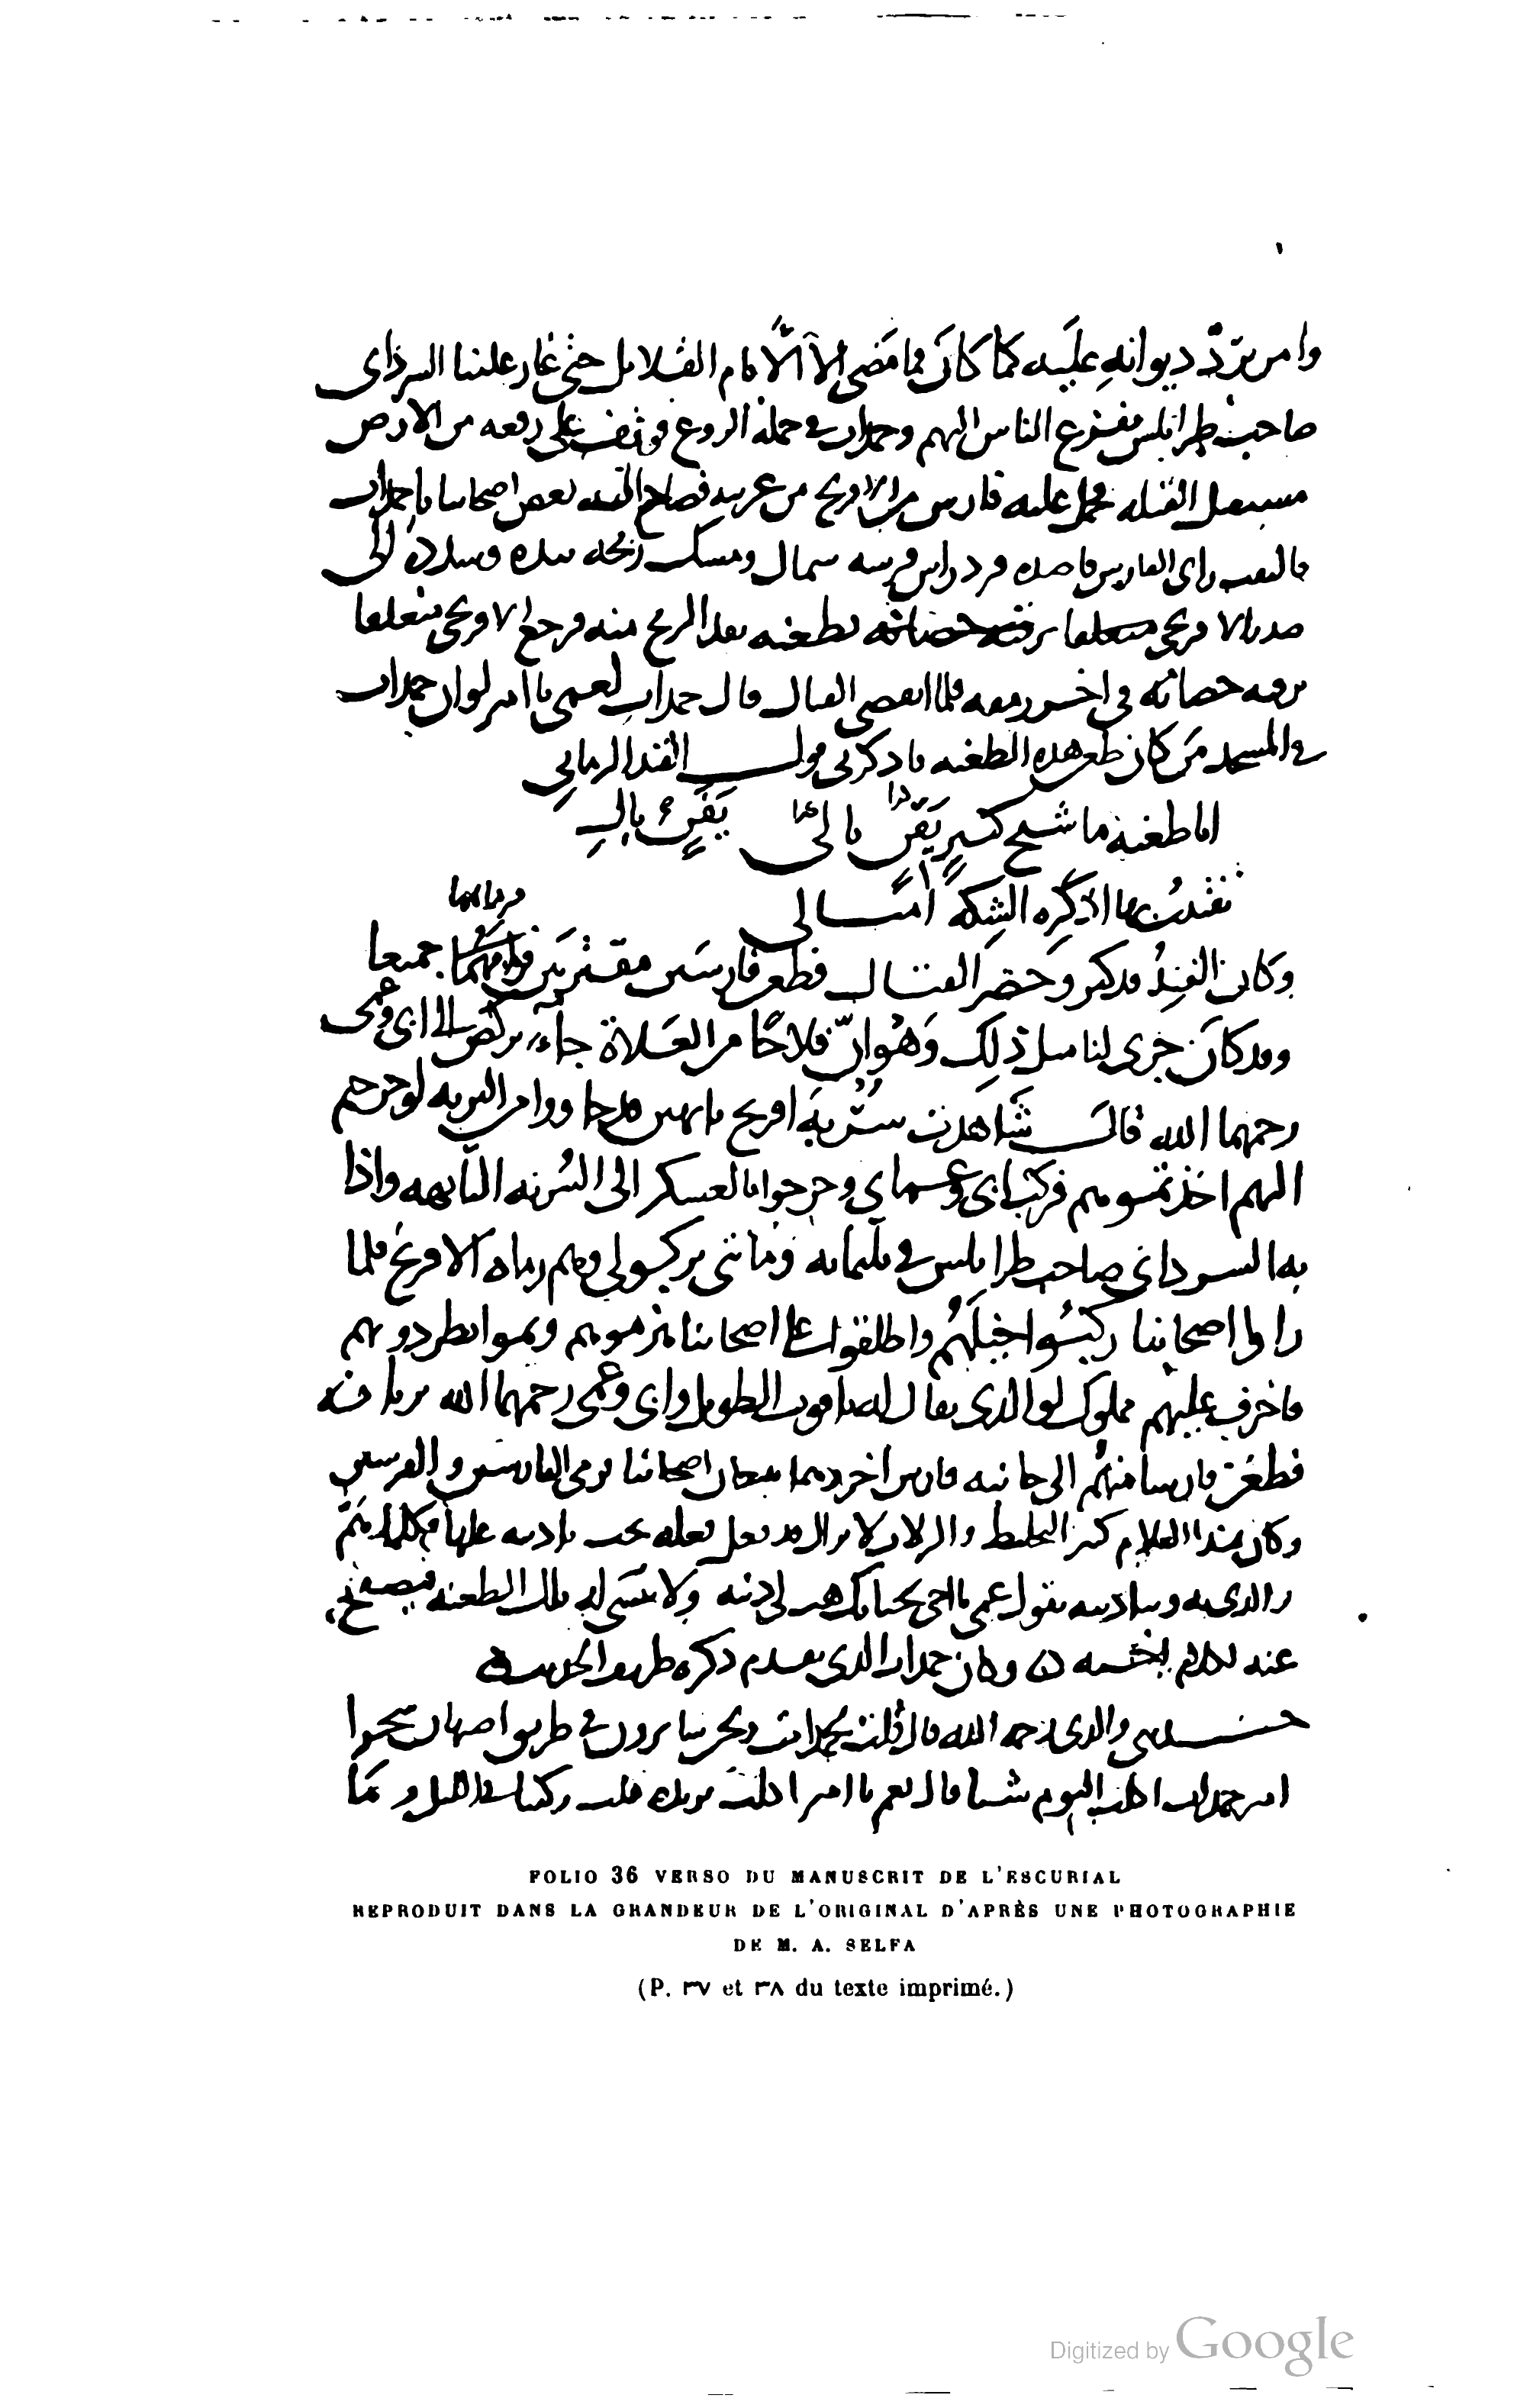 وامر بردّ ديوانهِ عليَه كما كانَ فما مَضى الا الايام القلايل حتى غار علينا السرداى
صاحب طرابلس ففزع الناس اليهم وحمدان فى جملة الروع فوقف على رفعه من الارض
مستقبل القبله فحمل عليه فارس من الافرنج من غربيه فصاح اليه بعض اصحابنا يا حمدان
فالتفت راى الفارس قاصده فرد راس فرسه شمال ومسك رمحه بيده وسدده الى
صدر الافرنجى فطعنه نفذ الرمح منه فرجع الافرنجى متعلقا
برقبه حصانه فى اخر رمقه فلما انقضى القتال قال حمدان لعمى يا امير لو ان حمدان
فى المسجد من كان طعن هذه الطعنه فاذكرنى قول الفند الزمانى
ايا طعنة ما شيخ كبير يفنٍ بالى يَفنٍ بالِ
تفتيتُ بها اذ كره الشكة امثالى
وكان الفِندُ قد كبر وحَضر القتال فطعن فارسَين مقترنَين فرماهما جميعا
فرماهما
وقد كانَ جرى لنا مثل ذلِك وَهُو انّ فلاحًا من العَلاة جاء يركض الى ابى وعمى
رحمهما الله قال شاهدت سُرّبة افرنج تايهين قد جاوا من البريه لو خرجتم
اليهم اخذتموهم فركب ابى وعماى وخرجوا بالعسكر الى السُربه التايهه واذا
به السرداى صاحب طرابلس فى ثلثمايه فارس ومائتى تركبولى وهم رماه الافرنج فلما
راوا اصحابنا ركبُوا خيلَهُم واطلقوا على اصحابنا هزموهم وتموا يطردونهم
فانحرف عليهم مملوك لوالدى يقال له ياقوت الطويل وابى وعمى رحمهما الله يريانه
فطعَن فارسا منهُم الى جانبه فارس اخر وهما يتبعان اصحابنا فرمى الفارسين والفرسين
وكان هذا الغلام كثير التخليط والزلات لا يزال قد فعل فعله يجب تاديبه عليها فكلما همَّ
والدى به وبتاديبه يقول عمى يا اخى بحياتك هب لى ذنبه وَلا تنسَى له تلك الطعنه فيصفح
عنه لكلام اخيه وكان حمدان الذى تقدم ذكره ظريف الحديث
حدثنى والدى رحمه الله قال قلت لحمدان ونحن سايرون فى طريق اصبهان سَحرا
امير حمدان اكلت اليوم شيا قال نعم يا امير اكلت ثريده قلت ركبنا فى الليل وما
FOLIO 36 VERSO DU MANUSCRIT DE L'ESCURIAL
REPRODUIT DANS LA GRANDEUR DE L'ORIGINAL D'APRÈS UNE PHOTOGRAPHIE
DE M. A. SELFA
(P. ٣٧ et ٣٨ du texte imprimé.)
Digitized by Google